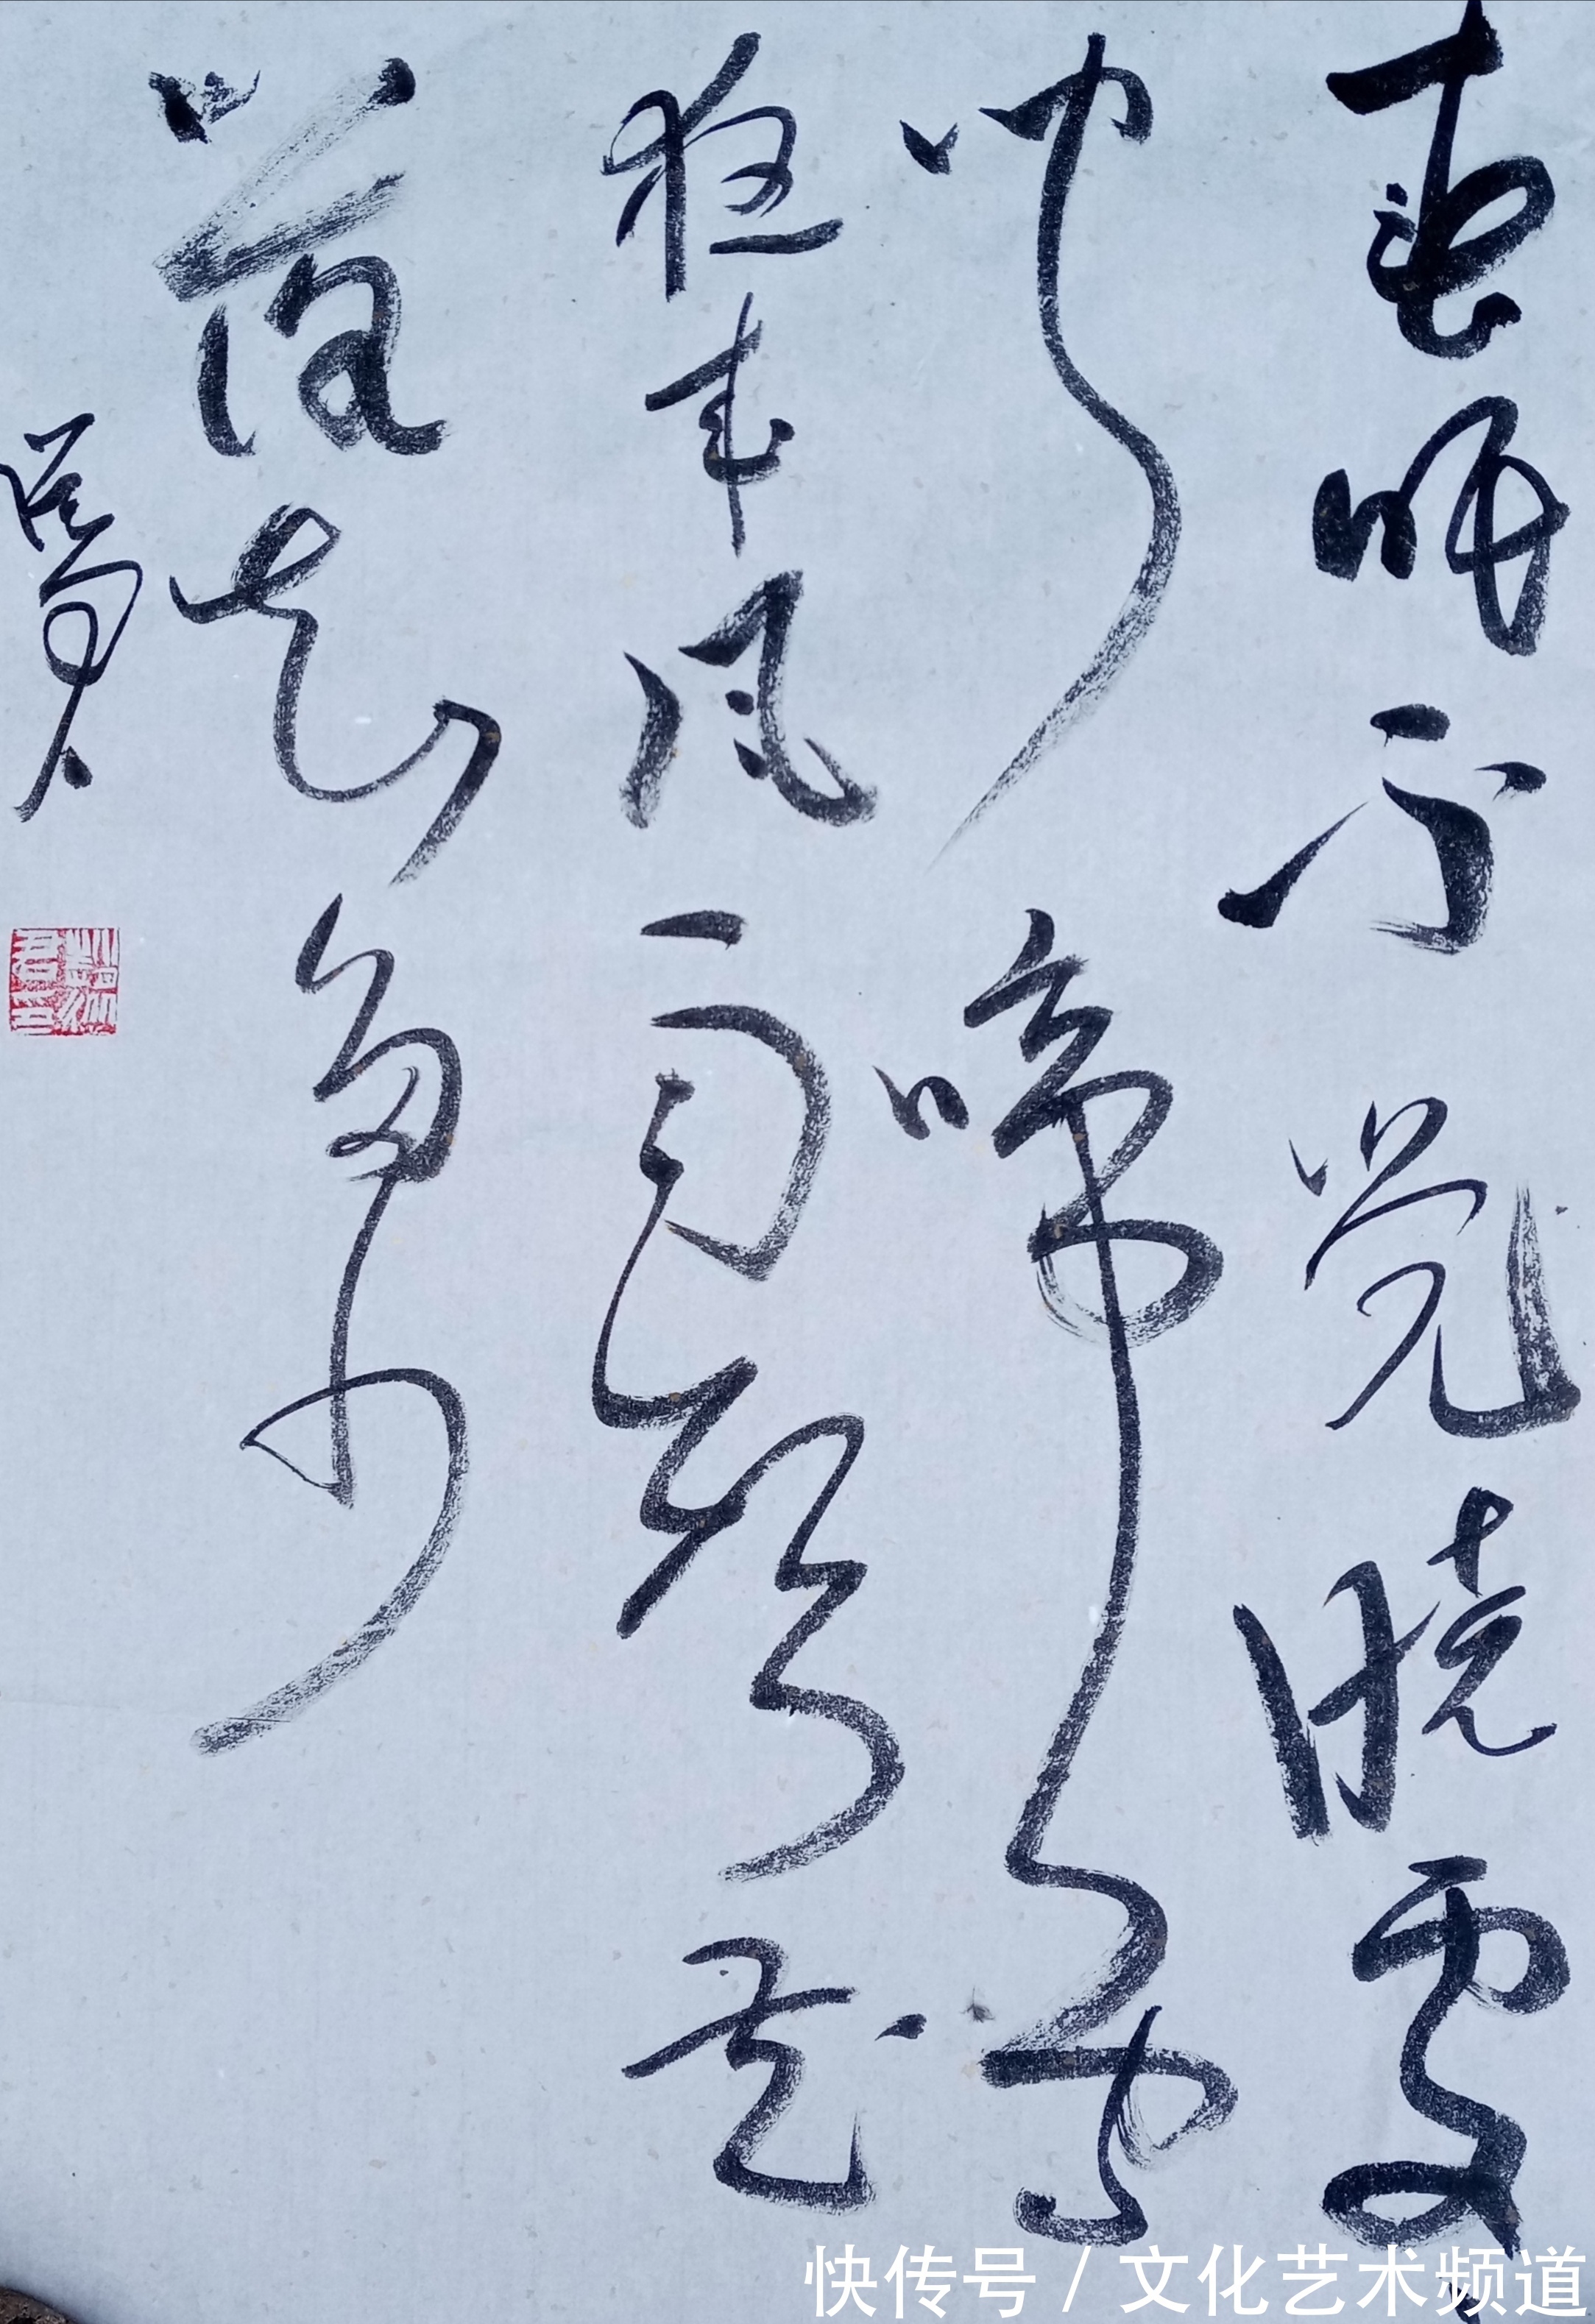 春眠不觉晓处
处闻啼鸟
夜来风雨声花
落知多少
快传号 / 文化艺术频道